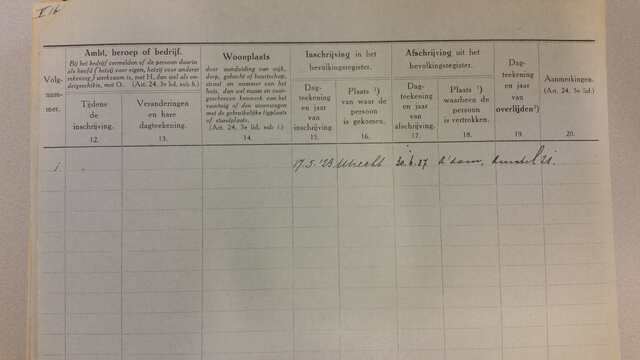 I 16
Volg-
num-
mer.
Ambt, beroep of bedrijf.
Bij het bedrijf vermelden of de persoon daarin
als hoofd (hetzij voor eigen, hetzij voor anderer
rekening) werkzaam is, met H, dan wel als on-
dergeschikte, met O. (Art. 24, 3e lid, sub h.)
Tijdens
de
inschrijving.
12.
Veranderingen
en hare
dagteekening.
13.
Woonplaats
door aanduiding van wijk,
dorp, gehucht of buurtschap,
straat en nummer van het
huis, dan wel naam en voor-
geschreven kenmerk van het
vaartuig of den woonwagen
met de gebruikelijke ligplaats
of standplaats.
(Art. 24, 3e lid, sub i.)
14.
Inschrijving in het
bevolkingsregister.
Dag-
teekening
en jaar
van
inschrijving.
15.
Plaats ¹)
van waar de
persoon
is gekomen.
16.
Afschrijving uit het
bevolkingsregister.
Dag-
teekening
en jaar van
afschrijving.
17.
Plaats ¹)
waarheen de
persoon
is vertrokken.
18.
Dag-
teekening
en jaar
van
overlijden²)
19.
Aanmerkingen.
(Art. 24, 3e lid.)
20.
1. 17.5.'23 Utrecht 30.6.27 A'dam, Amstel 21.